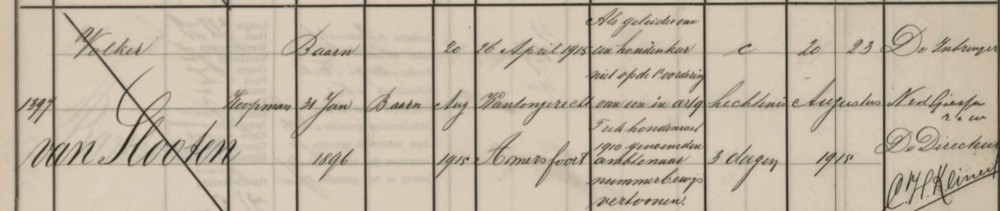 Volker Baarn 20 26 April 1915 Als geleider van een hondenkar c 20 23 De Inbrenger
niet op de 1e vordering
1397 Koopman 31 Jan Baarn Aug Kantongerecht van een in art 9 hechtenis Augustus Ned Giessen
Trekhondenwet
van Slooten 1896 1915 Amersfoort 1910 genoemden ambtenaar 3 dagen 1915 De Directeur
nummerbewijs
vertoonen. C.H. Kleinert